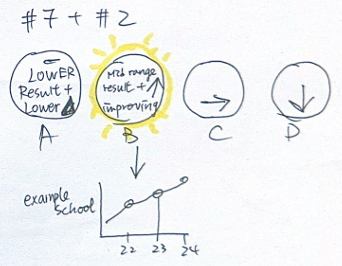 #7 + #2
LOWER
Result +
Lower
Mid range
result +
improving
A
B
C
D
example
school
22
23
24